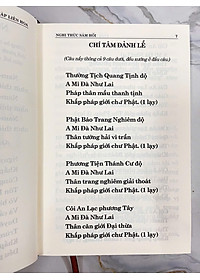 ÁP LIÊN HOA
NGHI THỨC SÁM HỐI
CHÍ TÂM ĐẢNH LỄ
(Câu này thông cả 9 câu dưới, đều xướng ở đầu câu)
Thường Tịch Quang Tịnh độ
A Mi Đà Như Lai
Pháp thân mầu thanh tịnh
Khắp pháp giới chư Phật. (1 lạy)
Phật Báo Trang Nghiêm độ
A Mi Đà Như Lai
Thân tướng hải vi trần
Khắp pháp giới chư Phật. (1 lạy)
Phương Tiện Thánh Cư độ
A Mi Đà Như Lai
Thân trang nghiêm giải thoát
Khắp pháp giới chư Phật. (1 lạy)
Cõi An Lạc phương Tây
A Mi Đà Như Lai
Thân căn giới Đại thừa
Khắp pháp giới chư Phật. (1 lạy)